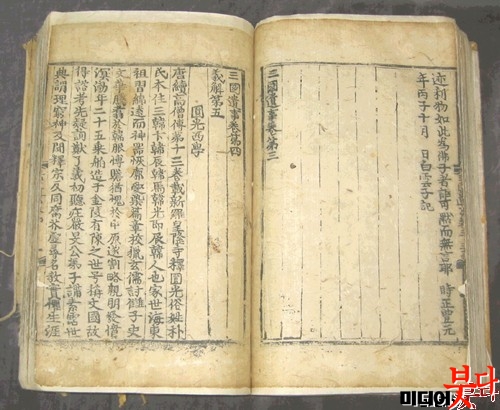 迹利物如此爲佛子者詎可黙而無言耶 時正豊元
年丙子十月 日白雲子記
三國遺事卷第三
三國遺事卷第四
義解第五
圓光西學
唐續高僧傳第十三卷載新羅皇隆寺釋圓光俗姓朴
氏本住三韓卞韓辰韓馬韓光即辰韓人也家世海東
祖習綿遠而神器恢廓愛染篇章校獵玄儒討讎子史
文華騰翥於韓服博贍猶愧於中原遂割略親朋發憤
溟渤年二十五乘舶造于金陵有陳之世号稱文國故
得諮考先疑詢猷了義初聽莊嚴旻公弟子講素霑世
典謂理窮神及聞釋宗反同腐芥虛尋名教實懼生涯
미디어붓다